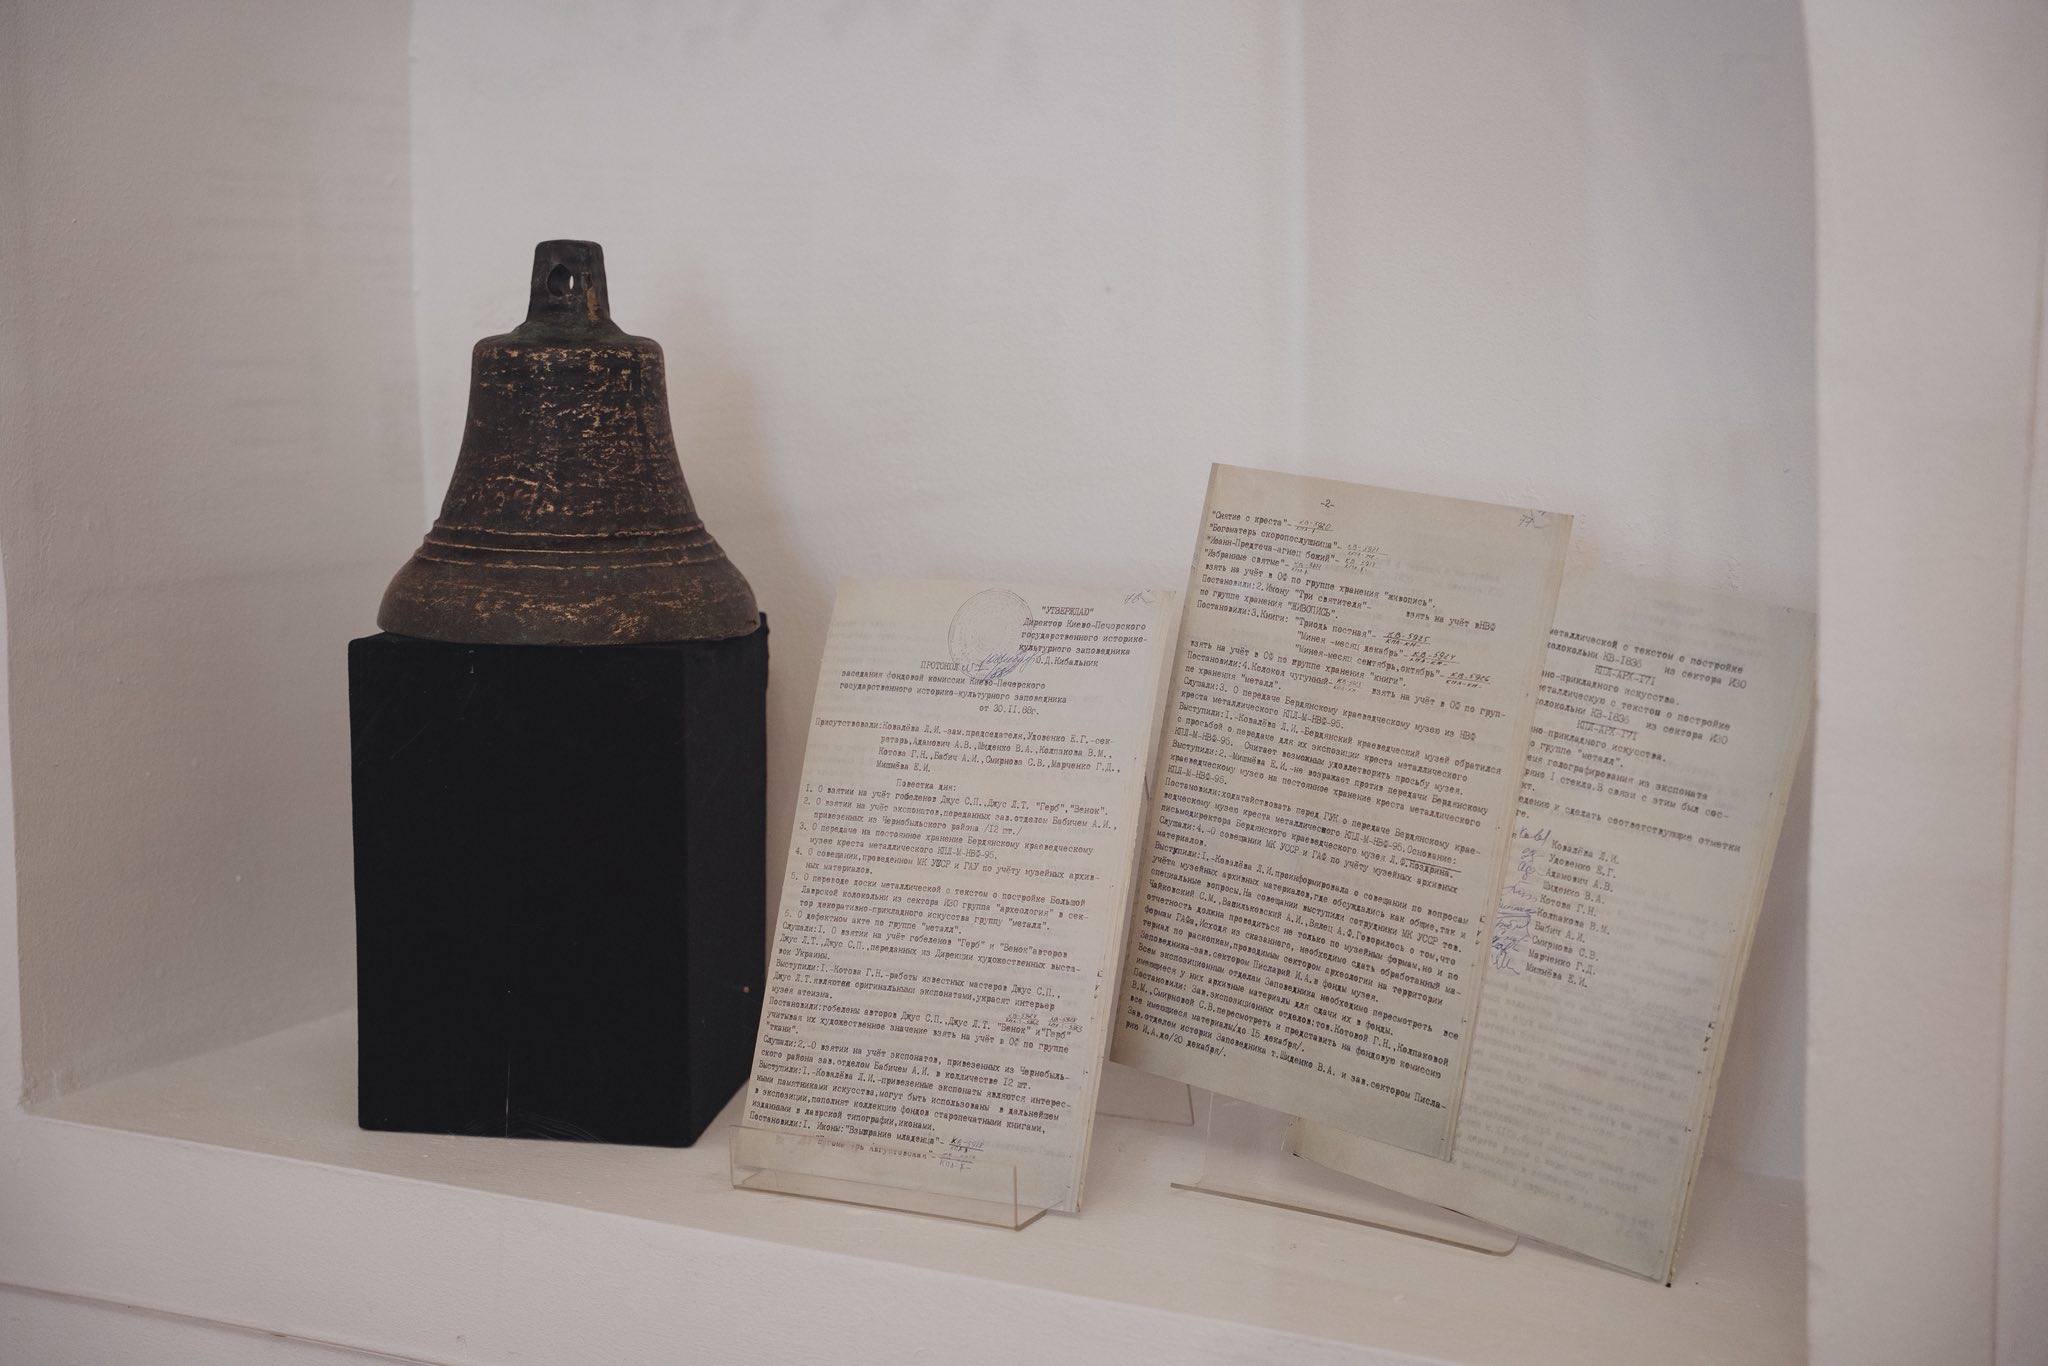 "УТВЕРЖДАЮ"
Директор Киево-Печерского
государственного историко-
культурного заповедника
Ю.Д.Кибальник
ПРОТОКОЛ
заседания фондовой комиссии Киево-Печерского
государственного историко-культурного заповедника
от 30.11.88г.
Присутствовали:Ковалёва Л.И.-зам.председателя,Удовенко Е.Г.-сек-
ретарь,Адамович А.В.,Шиденко В.А.,Колпакова В.М.,
Котова Г.Н.,Бабич А.И.,Смирнова С.В.,Марченко Г.Д.,
Мишнёва Е.И.
Повестка дня:
1. О взятии на учёт гобеленов Джус С.П.,Джус Л.Т. "Герб","Венок".
2. О взятии на учёт экспонатов,переданных зав.отделом Бабичем А.И.,
привезенных из Чернобыльского района /12 шт./
3. О передаче на постоянное хранение Бердянскому краеведческому
музею креста металлического КПЛ-М-НВФ-95.
4. О совещании,проведенном МК УССР и ГАУ по учёту музейных архив-
ных материалов.
5. О переводе доски металлической с текстом о постройке Большой
Лаврской колокольни из сектора ИЗО группа "археология" в сек-
тор декоративно-прикладного искусства группу "металл".
6. О дефектном акте по группе "металл".
Слушали:1. О взятии на учёт гобеленов "Герб" и "Венок"авторов
Джус Л.Т.,Джус С.П.,переданных из Дирекции художественных выста-
вок Украины.
Выступили:1.-Котова Г.Н.-работы известных мастеров Джус С.П.,
Джус Л.Т.являются оригинальными экспонатами,украсят интерьер
музея атеизма.
Постановили:гобелены авторов Джус С.П.,Джус Л.Т. "Венок" и"Герб"
учитывая их художественное значение взять на учёт в ОФ по группе
"ткани".
Слушали:2.-О взятии на учёт экспонатов, привезенных из Чернобыль-
ского района зав.отделом Бабичем А.И. в колличестве 12 шт.
Выступили:1.-Ковалёва Л.И.-привезенные экспонаты являются интерес-
ными памятниками искусства,могут быть использованы в дальнейшем
в экспозиции,пополнят коллекцию фондов старопечатными книгами,
изданными в лаврской типографии,иконами.
Постановили:1. Иконы:"Взыграние младенца"-
-2-
77
"Снятие с креста"- КВ-5920
"Богоматерь скоропослушница"- КВ-5921
"Иоанн-Предтеча-агнец божий"-
"Избранные святые"-
взять на учёт в ОФ по группе хранения "живопись".
Постановили:2.Икону "Три святителя"- взять на учёт вНВФ
по группе хранения "ЖИВОПИСЬ".
Постановили:3.Книги: "Триодь постная"- КВ-5925
"Минея -месяц декабрь"- КВ-5924
"Минея-месяц сентябрь,октябрь"- КВ-5926
взять на учёт в ОФ по группе хранения "книги".
Постановили:4.Колокол чугунный- взять на учёт в ОФ по груп-
пе хранения "металл".
Слушали:3. О передаче Бердянскому краеведческому музею из НВФ
креста металлического КПЛ-М-НВФ-95.
Выступили:1.-Ковалёва Л.И.-Бердянский краеведческий музей обратился
с просьбой о передаче для их экспозиции креста металлического
КПЛ-М-НВФ-95. Считает возможным удовлетворить просьбу музея.
Выступили:2.-Мишнёва Е.И.-не возражает против передачи Бердянскому
краеведческому музею на постоянное хранение креста металлического
КПЛ-М-НВФ-95.
Постановили:ходатайствовать перед ГУК о передаче Бердянскому крае-
ведческому музею креста металлического КПЛ-М-НВФ-95.Основание:
письмодиректора Бердянского краеведческого музея Л.Ф.Ноздрина.
Слушали:4.-О совещании МК УССР и ГАФ по учёту музейных архивных
материалов.
Выступили:1.-Ковалёва Л.И.проинформировала о совещании по вопросам
учёта музейных архивных материалов,где обсуждались как общие,так и
специальные вопросы.На совещании выступили сотрудники МК УССР тов.
Чайковский С.М.,Вашильковский А.И.,Вялец А.Ф.Говорилось о том,что
отчетность должна проводиться не только по музейным формам,но и по
формам ГАФа.Исходя из сказанного, необходимо сдать обработанный ма-
териал по раскопкам,проводимым сектором археологии на территории
Заповедника-зав.сектором Писларий И.А.в фонды музея.
Всем экспозиционным отделам Заповедника необходимо пересмотреть все
имеющиеся у них архивные материалы для сдачи их в фонды.
Постановили: Зав.экспозиционных отделов:тов.Котовой Г.Н.,Колпаковой
В.М.,Смирновой С.В.пересмотреть и представить на фондовую комиссию
все имеющиеся материалы/до 15 декабря/.
Зав.отделом истории Заповедника т.Шиденко В.А. и зав.сектором Писла-
рию И.А.до/20 декабря/.
металлической с текстом о постройке
колокольни КВ-1836 из сектора ИЗО
КПЛ-АРХ-171
но-прикладного искусства.
металлическую с текстом о постройке
колокольни КВ-1836 из сектора ИЗО
КПЛ-АРХ-171
но-прикладного искусства.
о группе "металл".
емя голографирования из экспоната
ряно 1 стекло.В связи с этим был сос-
кт.
едению и сделать соответствующие отметки
ге.
Ковалёва Л.И.
Удовенко Е.Г.
Адамович А.В.
Шиденко В.А.
Котова Г.Н.
Колпакова В.М.
Бабич А.И.
Смирнова С.В.
Марченко Г.Д.
Мишнёва Е.И.